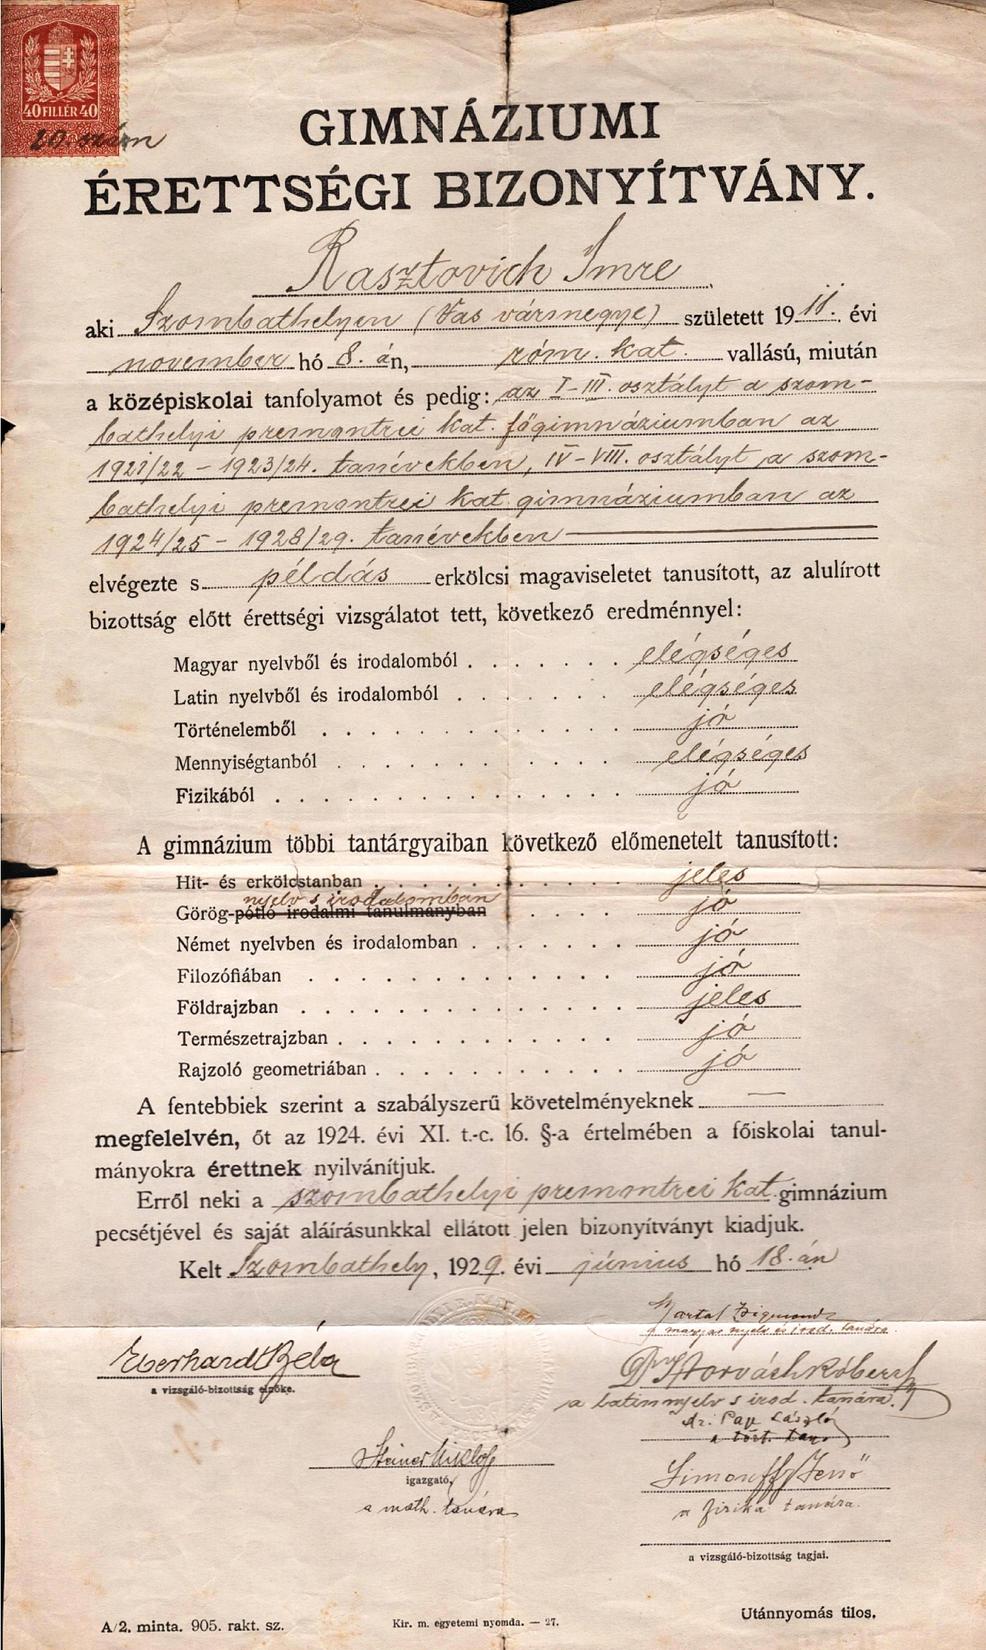 40 FILLÉR 40
20. szám
GIMNÁZIUMI
ÉRETTSÉGI BIZONYÍTVÁNY.
Rasztovich Imre
aki Szombathelyen (Vas vármegye) született 1911. évi
november hó 8. án, róm. kat. vallású, miután
a középiskolai tanfolyamot és pedig: az I-III. osztályt a szom-
bathelyi premontrei kat. főgimnáziumban az
1921/22 - 1923/24. tanévekben, IV-VIII. osztályt a szom-
bathelyi premontrei kat. gimnáziumban az
1924/25 - 1928/29. tanévekben
elvégezte s példás erkölcsi magaviseletet tanusított, az alulírott
bizottság előtt érettségi vizsgálatot tett, következő eredménnyel:
Magyar nyelvből és irodalomból . . . . . . elégséges
Latin nyelvből és irodalomból . . . . . . elégséges
Történelemből . . . . . . jó
Mennyiségtanból . . . . . . elégséges
Fizikából . . . . . . jó
A gimnázium többi tantárgyaiban következő előmenetelt tanusított:
Hit- és erkölcstanban . . . . . . jeles
nyelv s irodalomban
Görög-pótló irodalmi tanulmányban . . . . jó
Német nyelvben és irodalomban . . . . . . jó
Filozófiában . . . . . . jó
Földrajzban . . . . . . jeles
Természetrajzban . . . . . . jó
Rajzoló geometriában . . . . . . jó
A fentebbiek szerint a szabályszerű követelményeknek —
megfelelvén, őt az 1924. évi XI. t.-c. 16. §-a értelmében a főiskolai tanul-
mányokra érettnek nyilvánítjuk.
Erről neki a szombathelyi premontrei kat. gimnázium
pecsétjével és saját aláírásunkkal ellátott jelen bizonyítványt kiadjuk.
Kelt Szombathely, 1929. évi június hó 18. án
Bartal Zsigmond
a magyar nyelv és irod. tanára.
Eberhard Béla
a vizsgáló-bizottság elnöke.
Dr Horváth Róbert
a latin nyelv s irod. tanára.
dr. Papp László
a tört. tan.
Steiner Miklós
igazgató,
a math. tanára
Simonffy Jenő
a fizika tanára.
a vizsgáló-bizottság tagjai.
A/2. minta. 905. rakt. sz.
Kir. m. egyetemi nyomda. — 27.
Utánnyomás tilos.